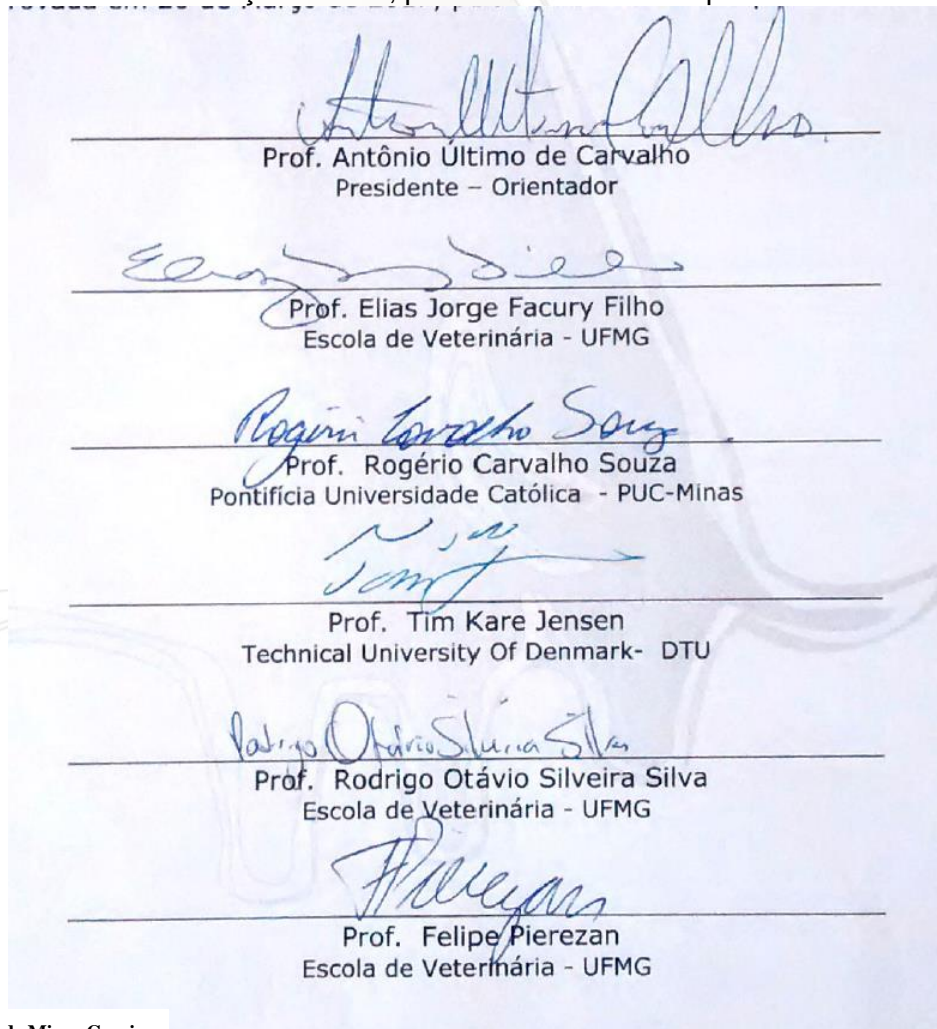 Prof. Antônio Último de Carvalho
Presidente – Orientador
Prof. Elias Jorge Facury Filho
Escola de Veterinária - UFMG
Rogério Carvalho Souza
Prof. Rogério Carvalho Souza
Pontifícia Universidade Católica - PUC-Minas
Prof. Tim Kare Jensen
Technical University Of Denmark- DTU
Rodrigo Otávio Silveira Silva
Prof. Rodrigo Otávio Silveira Silva
Escola de Veterinária - UFMG
Prof. Felipe Pierezan
Escola de Veterinária - UFMG